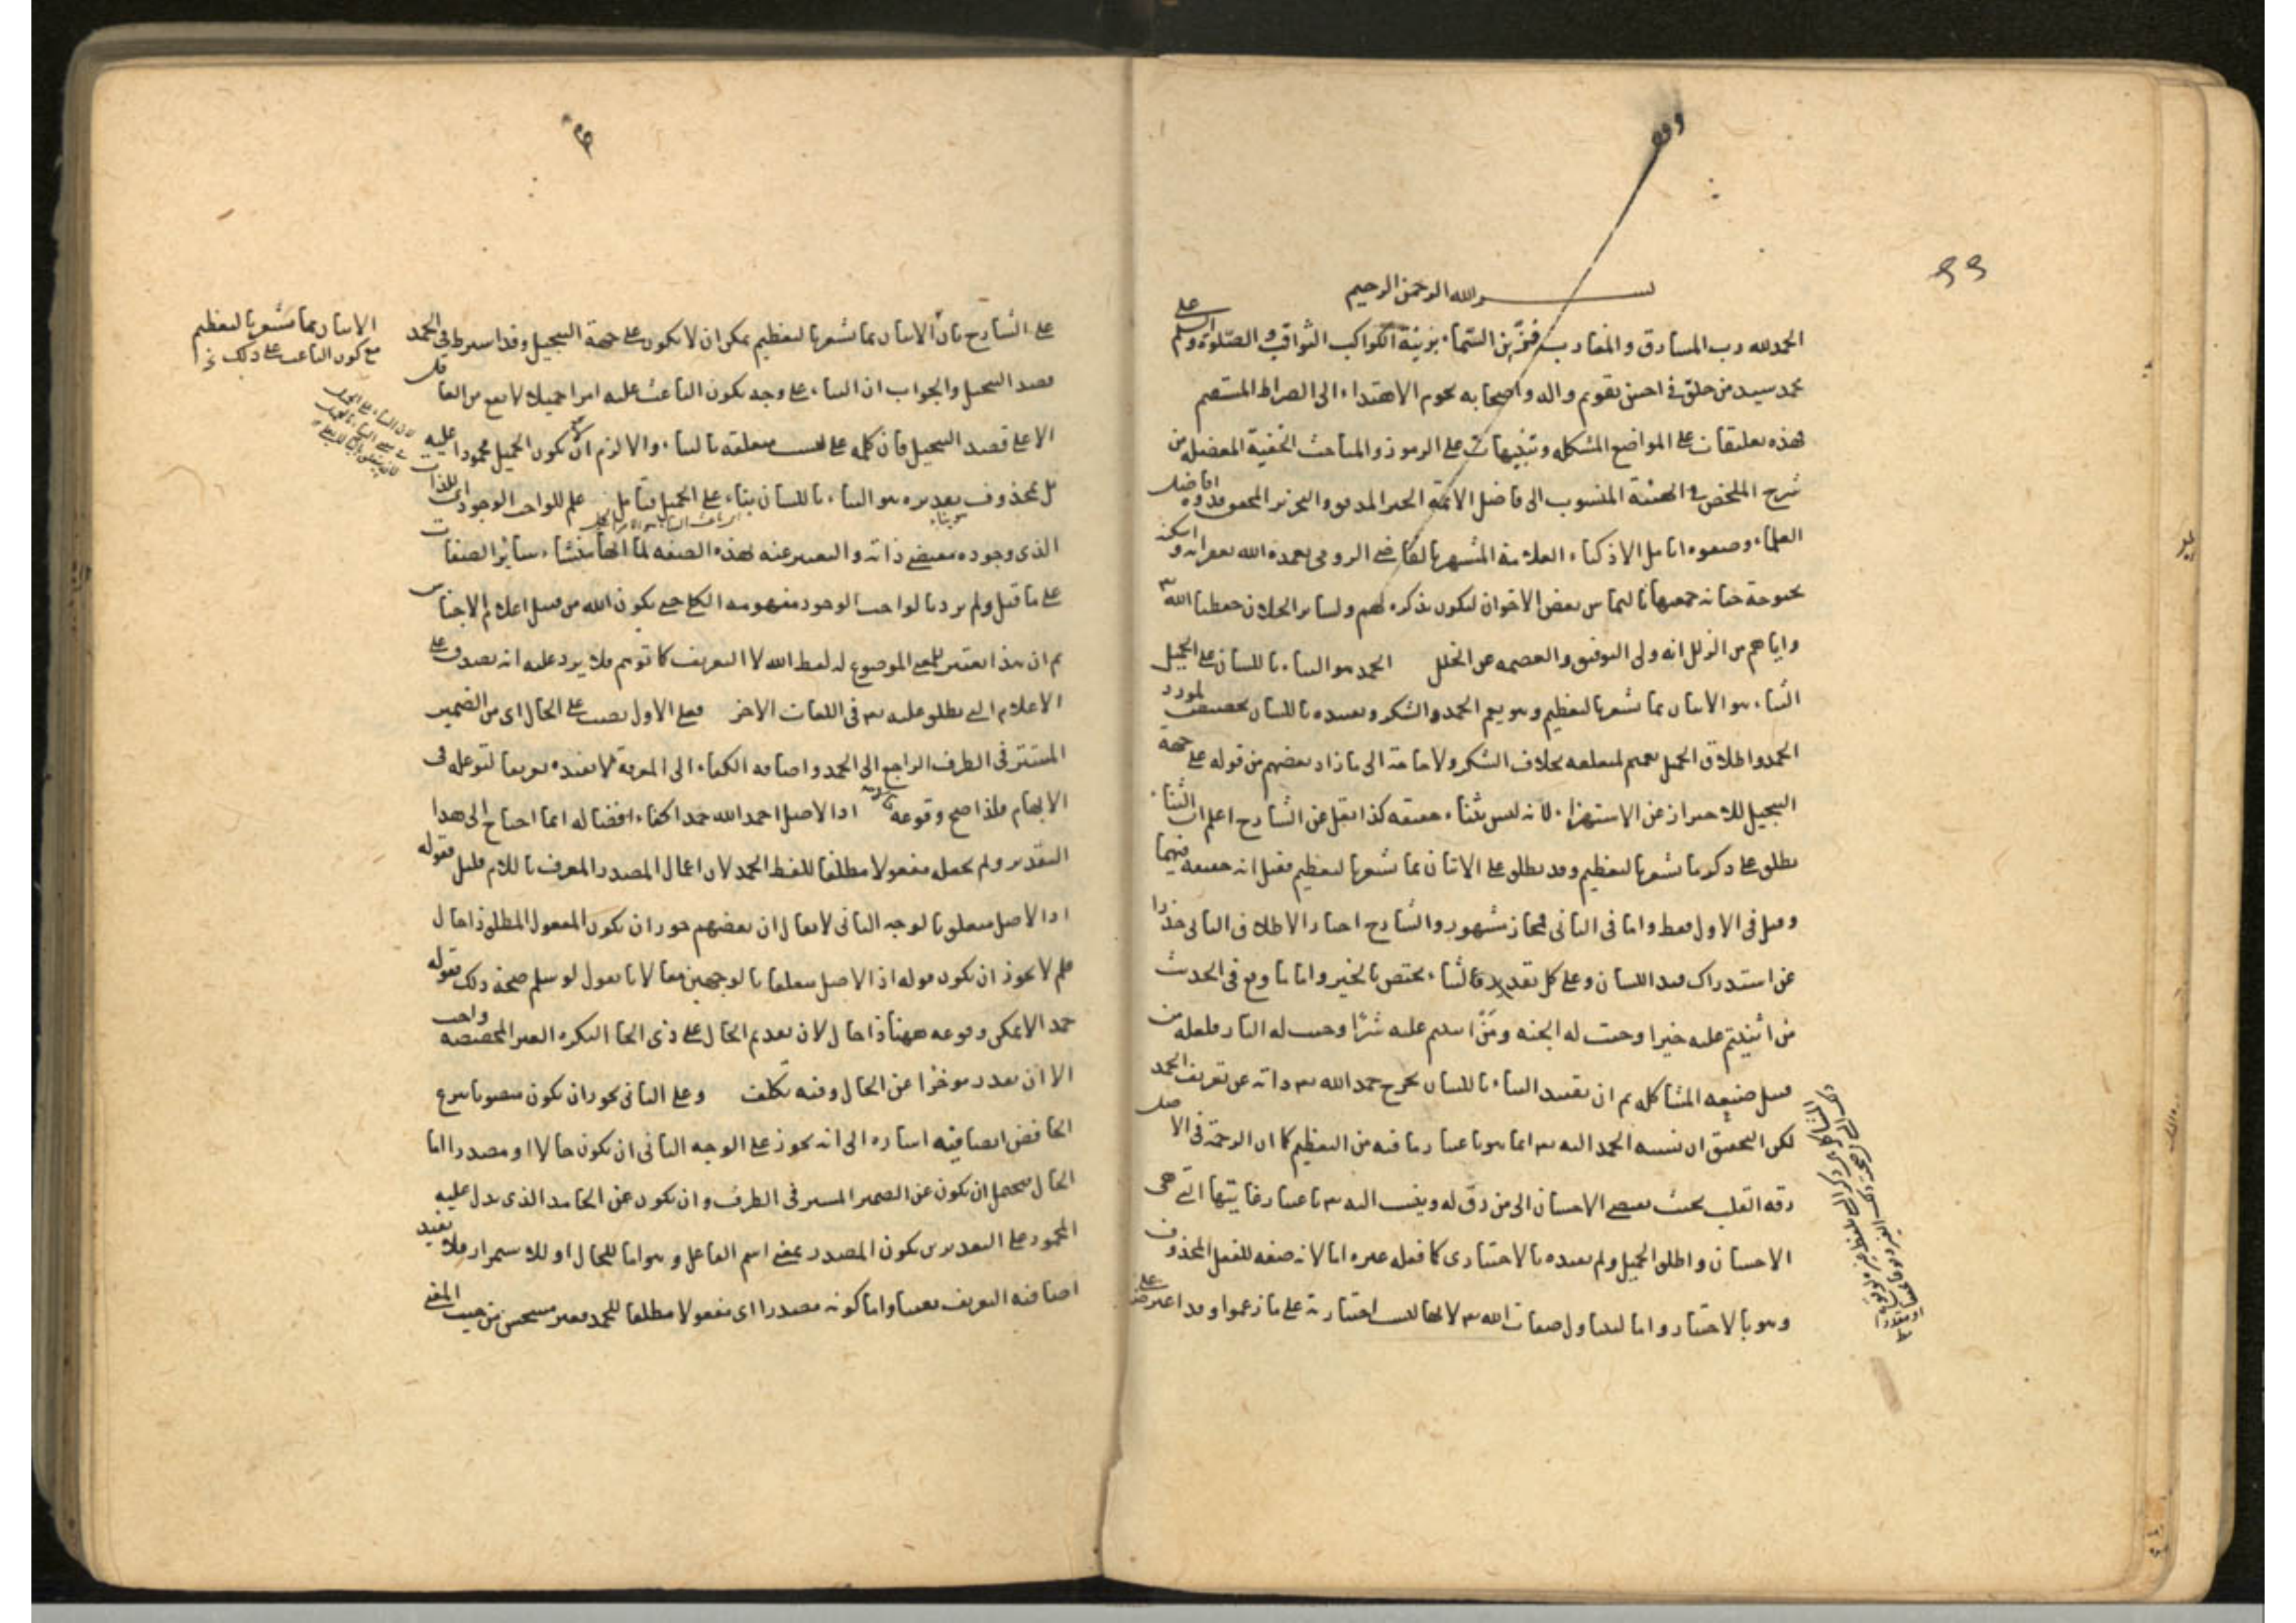 وقف
بسم الله الرحمن الرحيم
الحمد لله رب المشارق والمغارب مزين السماء بزينة الكواكب الثواقب والصلوة والسلم على
محمد سيد من خلق في احسن تقويم واله واصحابه نجوم الاهتداء الى الصراط المستقيم
فهذه تعليقات على المواضع المشكله وتنبيهات على الرموز والمباحث الخفية المعضله من
شرح الملخص في الهيئة المنسوب الى فاضل الائمة الحبر المدقق والنحرير المحقق قدوه افاضل
العلماء وصفوه اماثل الاذكياء العلامة المشتهر بالقاضي الرومي تغمده الله بغفرانه واسكنه
بحبوحة جنانه جمعتها بالتماس بعض الاخوان ليكون تذكره لهم ولسائر الخلان حفظنا الله
واياهم من الزلل انه ولى التوفيق والعصمه عن الخلل الحمد هو الثناء باللسان على الجميل
الثناء هو الاتيان بما يشعر بالتعظيم وهو يعم الحمد والشكر وتقييده باللسان تخصيص لمورد
الحمد واطلاق الجميل تعميم لمتعلقه بخلاف الشكر ولا حاجة الى ما زاد بعضهم من قوله على جهة
التبجيل للاحتراز عن الاستهزاء لانه ليس بثناء حقيقه كذا نقل عن الشارح اعلم ان الثناء
يطلق على ذكر ما يشعر بالتعظيم وقد يطلق على الاتيان بما يشعر بالتعظيم فقيل انه حقيقه فيهما
وقيل في الاول فقط واما في الثاني فمجاز مشهور والشارح اختار الاطلاق الثاني حذرا
عن استدراك قيد اللسان وعلى كل تقدير فالثناء يختص بالخير واما ما وقع في الحديث
من اثنيتم عليه خيرا وجبت له الجنه ومن اثنيتم عليه شرا وجبت له النار فلعله من
قبيل صنيعه المشاكله ثم ان تقييد الثناء باللسان يخرج حمد الله تع ذاته عن تعريف الحمد
لكن التحقيق ان نسبه الحمد اليه تع انما هو باعتبار ما فيه من التعظيم كما ان الرحمة في الاصل
رقه القلب بحيث يقتضي الاحسان الى من رق له وينسب اليه تع باعتبار غايتها التي هي
الاحسان واطلق الجميل ولم يقيده بالاختياري كما فعله غيره اما لانه صفه للفعل المحذوف
وهو بالاختيار واما ليتناول صفات الله تع لانها ليست اختيارية على ما زعموا وقد اعترض على
على الشارح بان الاتيان بما يشعر بالتعظيم يمكن ان لا يكون على جهة التبجيل وقد اشترط في الحمد
قصد التبجيل والجواب ان الثناء على وجه يكون الباعث عليه امرا جميلا لا يقع من العاقل
الا على قصد التبجيل فان كلمه على ليست متعلقه بالثناء والا لزم ان يكون الجميل محمودا عليه
بل بمحذوف تقديره هو الثناء باللسان بناء على الجميل فتامل علم للواجب الوجود لذاته اي
الذي وجوده مقتضى ذاته والتعبير عنه بهذه الصفه لما انها منشاء سائر الصفات
على ما قيل ولم يرد بالواجب الوجود مفهومه الكلي حتى يكون الله من قبيل اعلام الاجناس
ثم ان هذا تفسير للمعنى الموضوع له لفظ الله لا التعريف كما توهم فلا يرد عليه انه يصدق على
الاعلام التي يطلق عليه تع في اللغات الاخر فعلى الاول نصب على الحال اي من الضمير
المستتر في الظرف الراجع الى الحمد واضافه الكفاء الى المعرفة لا تفيده تعريفا لتوغله في
الابهام فلذا صح وقوعه حالا اذ الاصل احمد الله حمدا كفاء افضاله انما احتاج الى هذا
التقدير ولم يجعل مفعولا مطلقا للفظ الحمد لان اعمال المصدر المعرف باللام قليل فقوله
اذ الاصل متعلق بالوجه الثاني لا يقال ان بعضهم جوز ان يكون المفعول المطلق ذا حال
فلم لا يجوز ان يكون قوله اذ الاصل متعلقا بالوجهين معا لانا نقول لو سلم صحة ذلك فقوله
حمدا لا يمكن وقوعه ههنا ذا حال لان تقديم الحال على ذي الحال النكره الغير المخصصه واجب
الا ان يقدر موخرا عن الحال وفيه تكلف وعلى الثاني يجوز ان يكون منصوبا بنزع
الخافض ايضا فيه اشاره الى انه يجوز على الوجه الثاني ان يكون حالا او مصدرا اما
الحال فيحتمل ان يكون عن الضمير المستتر في الظرف وان يكون عن الحامد الذي يدل عليه
المحمود على التقديرين يكون المصدر بمعنى اسم الفاعل وهو اما للحال او للاستمرار فلا يفيد
اضافته التعريف تعيينا واما كونه مصدرا اي مفعولا مطلقا للحمد فغير مستحسن من حيث المعنى
الاتيان بما يشعر بالتعظيم
مع كون الباعث على ذلك نخ